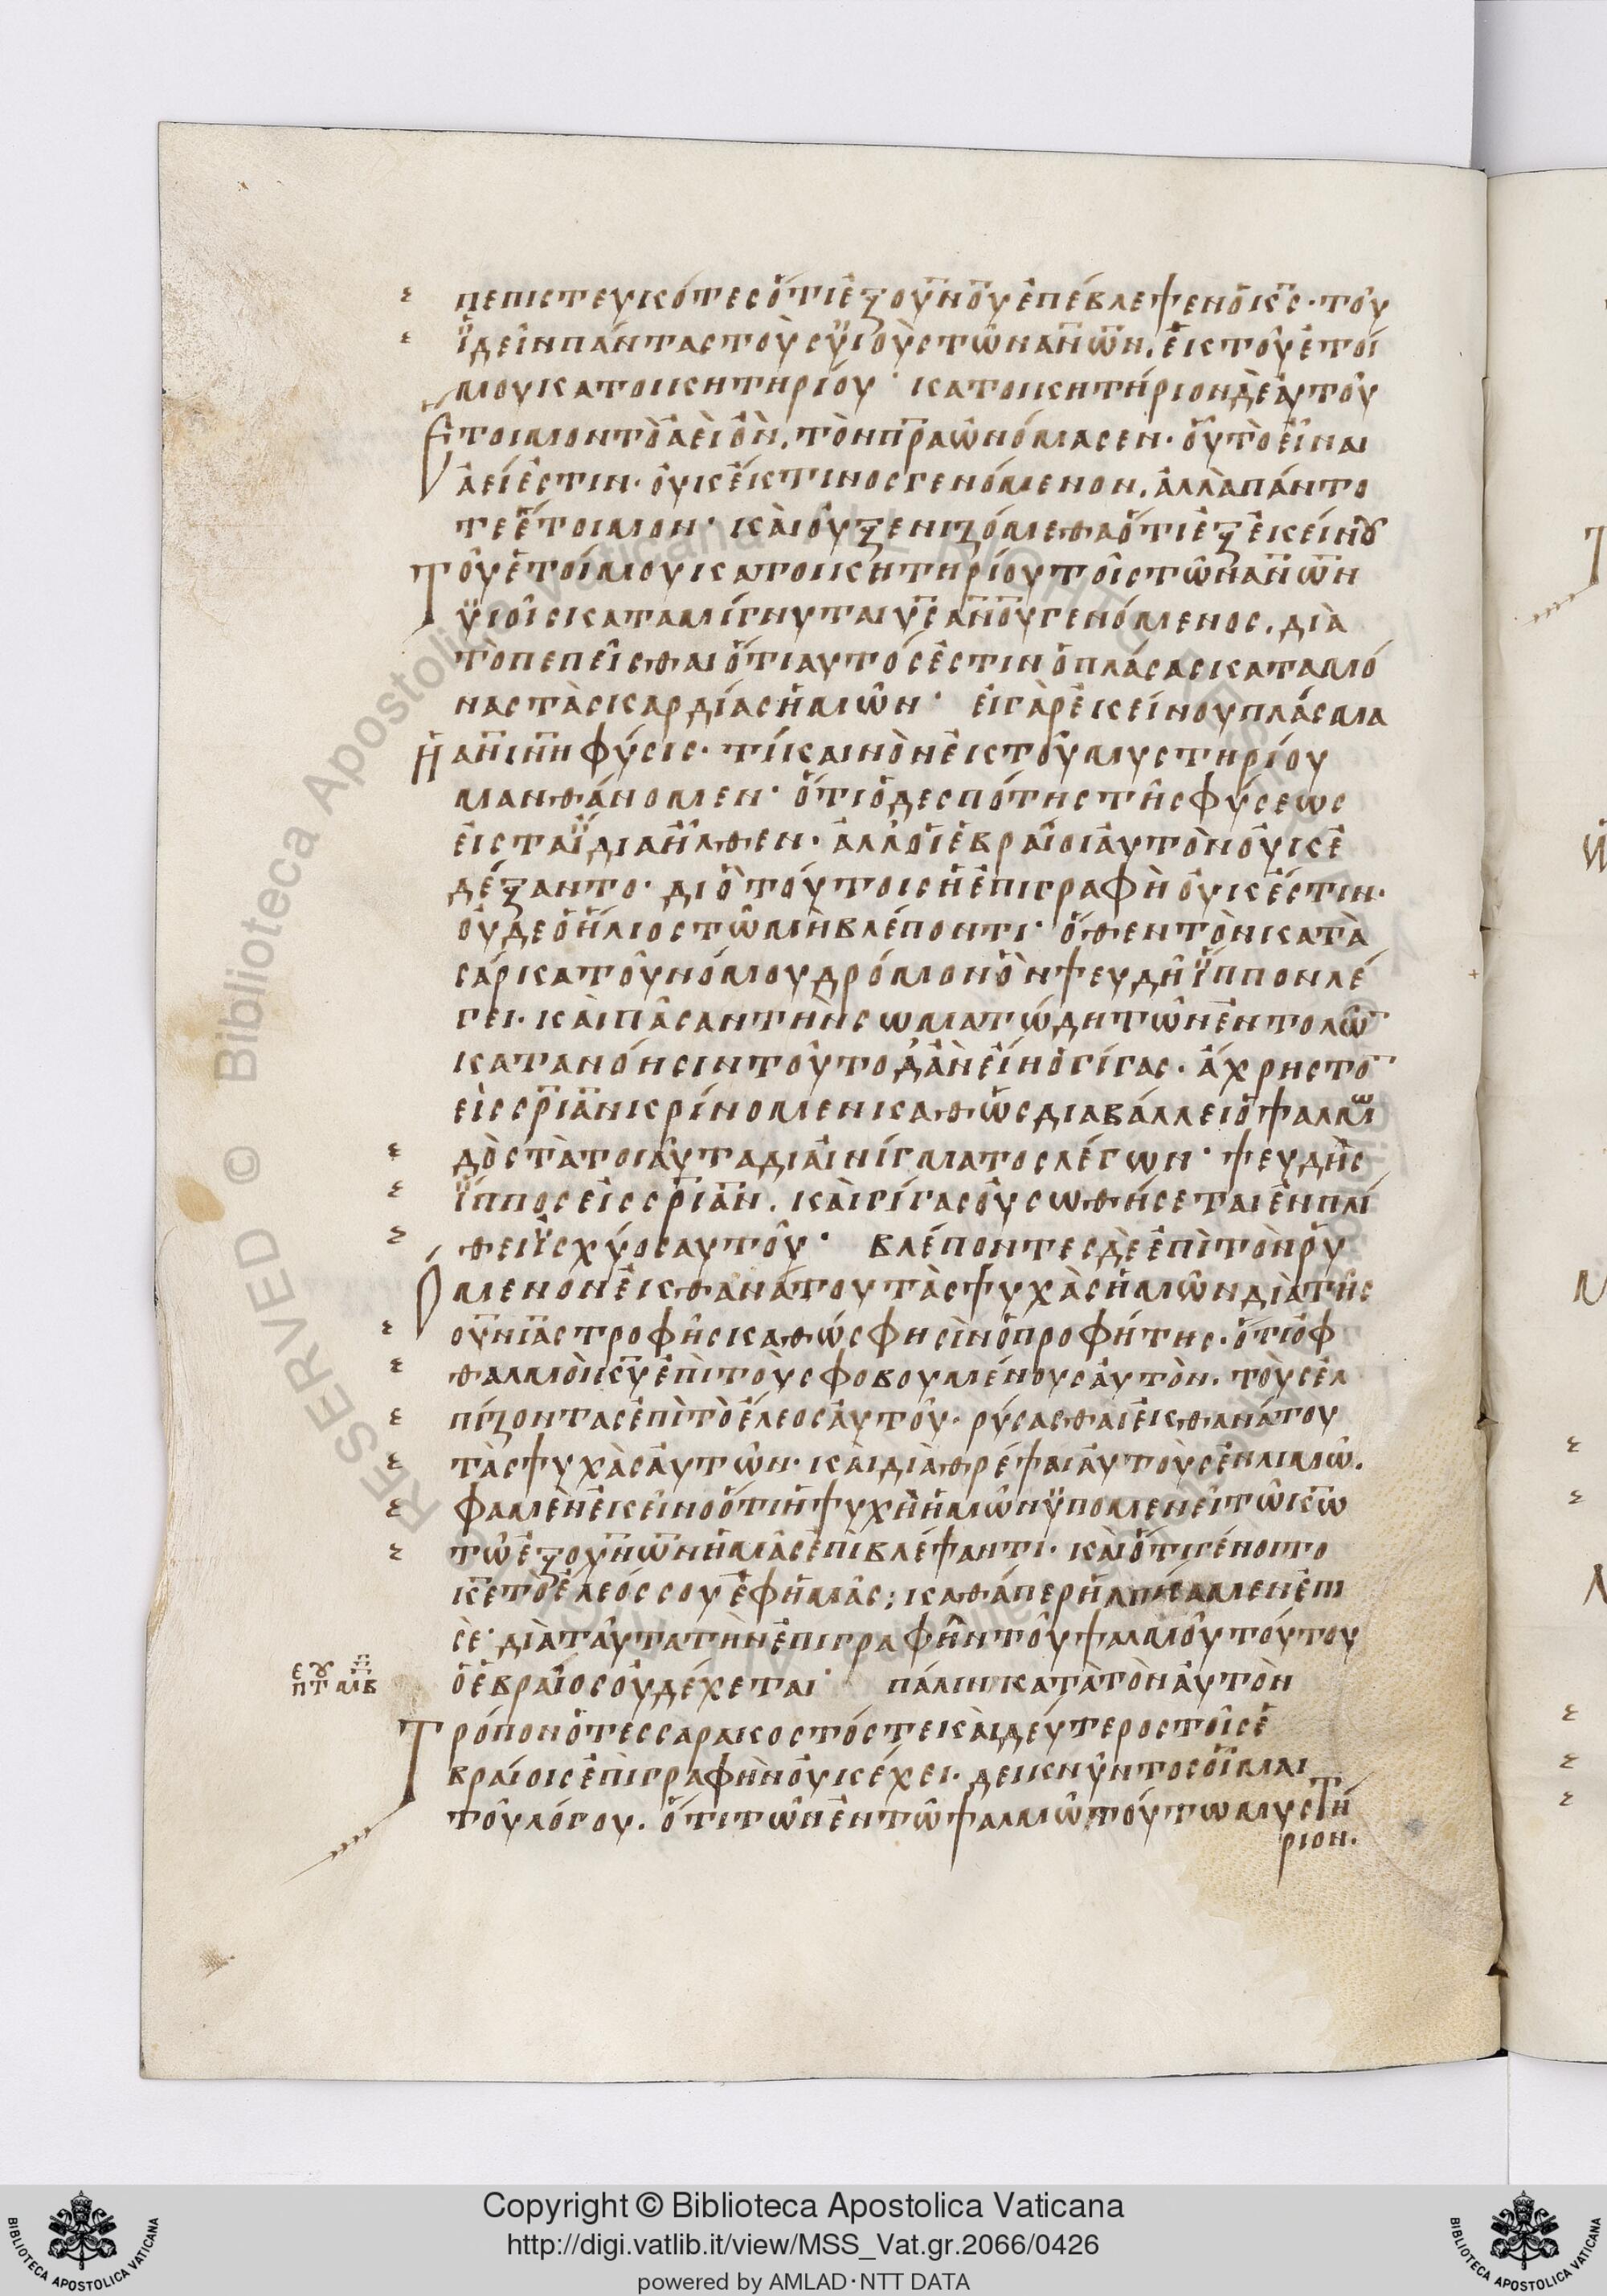 πεπιστευκότες ὅτι ἐξ οὐ̅ν̅ου ἐπέβλεψεν ὁ κ̅ς̅· τοῦ
ἰδεῖν πάντας τοὺς υἱοὺς τῶν α̅ν̅ω̅ν̅. ἐκ τοῦ ἑτοί
μου κατοικητηρίου· κατοικητήριον δὲ αὐτοῦ
Ετοιμον τὸ ἀεὶ ὂν. τὸν π̅ρ̅α̅ ὠνόμασεν· οὗ τὸ εἶναι
ἀεί ἐστιν· οὐκ ἔκ τινος γενόμενον, ἀλλὰ πάντο
τε ἕτοιμον· καὶ οὐ ξενιζόμεθα ὅτι ἐξ ἐκείνου
Τοῦ ἑτοίμου κατοικητηρίου τοῖς τῶν α̅ν̅ω̅ν̅
υἱοῖς καταμίγνυται υ̅ς̅ α̅ν̅ο̅υ̅ γενόμενος, διὰ
τὸ πεπεῖσθαι ὅτι αὐτός ἐστιν ὁ πλάσας καταμό
νας τὰς καρδίας ἡμῶν· εἰ γὰρ ἐκείνου πλάσμα
Ἡ α̅ν̅ι̅ν̅η φύσις· τί καινὸν ἐκ τοῦ μυστηρίου
μανθάνομεν· ὅτι ὁ δεσπότης τῆς φύσεως
εἰς τὰ ἴδια ἦλθεν· ἀλλ' οἱ ἑβραῖοι αὐτὸν οὐκ ἐ
δέξαντο· διὸ τούτοις ἡ ἐπιγραφὴ οὐκ ἔστιν·
οὐδε ὁ ἥλιος τῶ μὴ βλέποντι· ὅθεν τὸν κατὰ
σάρκα τοῦ νόμου δρόμον ὃν ψευδῆ ἵππον λέ
γει· καὶ πᾶσαν τὴν σωματώδη τῶν ἐντολῶ̅
κατανόησιν τοῦτο δ' ἂν εἴη ὁ γίγας· ἄχρηστο̅
εἰς σ̅ρ̅ι̅α̅ν κρίνομεν καθὼς διαβάλλει ὁ ψαλμω
δὸς τὰ τοιαῦτα δι αἰνίγματος λέγων· ψευδὴς
ἵππος εἰς σ̅ρ̅ι̅α̅ν. καὶ γίγας οὐ σωθήσεται ἐν πλή
θει ἰσχύος αὐτοῦ· βλέποντες δὲ ἐπὶ τὸν ρυ
Ομενον ἐκ θανάτου τὰς ψυχὰς ἡμῶν διὰ τῆς
ο̅υ̅ν̅ι̅α̅ς τροφῆς καθώς φησὶν ὁ προφήτης· ὅτι ὀφ
θαλμοὶ κ̅υ̅ ἐπὶ τοὺς φοβουμένους αὐτὸν. τοὺς ἐλ
πίζοντας ἐπὶ τὸ ἔλεος αὐτοῦ· ρύσασθαι ἐκ θανάτου
τὰς ψυχὰς αὐτῶν· καὶ διαθρέψαι αὐτοὺς ἐν λιμῶ.
φαμὲν ἐκεῖνο ὅτι ἡ ψυχὴ ἡμῶν ὑπομενεῖ τῶ κ̅ω̅
τῶ ἐξ ο̅υ̅ν̅ω̅ν ἡμᾶς ἐπιβλέψαντι· καὶ ὅτι γένοιτο
κ̅ε̅ τὸ ἔλεός σου ἐφ ἡμᾶς; καθάπερ ἠλπίσαμεν ἐπι
σὲ· διὰ ταῦτα τὴν ἐπιγραφὴν τοῦ ψαλμοῦ τούτου
ὁ ἑβραῖος οὐ δέχεται· πάλιν κατὰ τὸν αὐτὸν
Τρόπον ὁ τεσσαρακοστός τε καὶ δεύτερος τοῖς ἑ
βραίοις ἐπιγραφὴν οὐκ ἔχει· δεικνῦντος οἶμαι
τοῦ λόγου. ὅτι τῶν ἐν τῶ ψαλμῶ τούτω μυστη
ρίον.